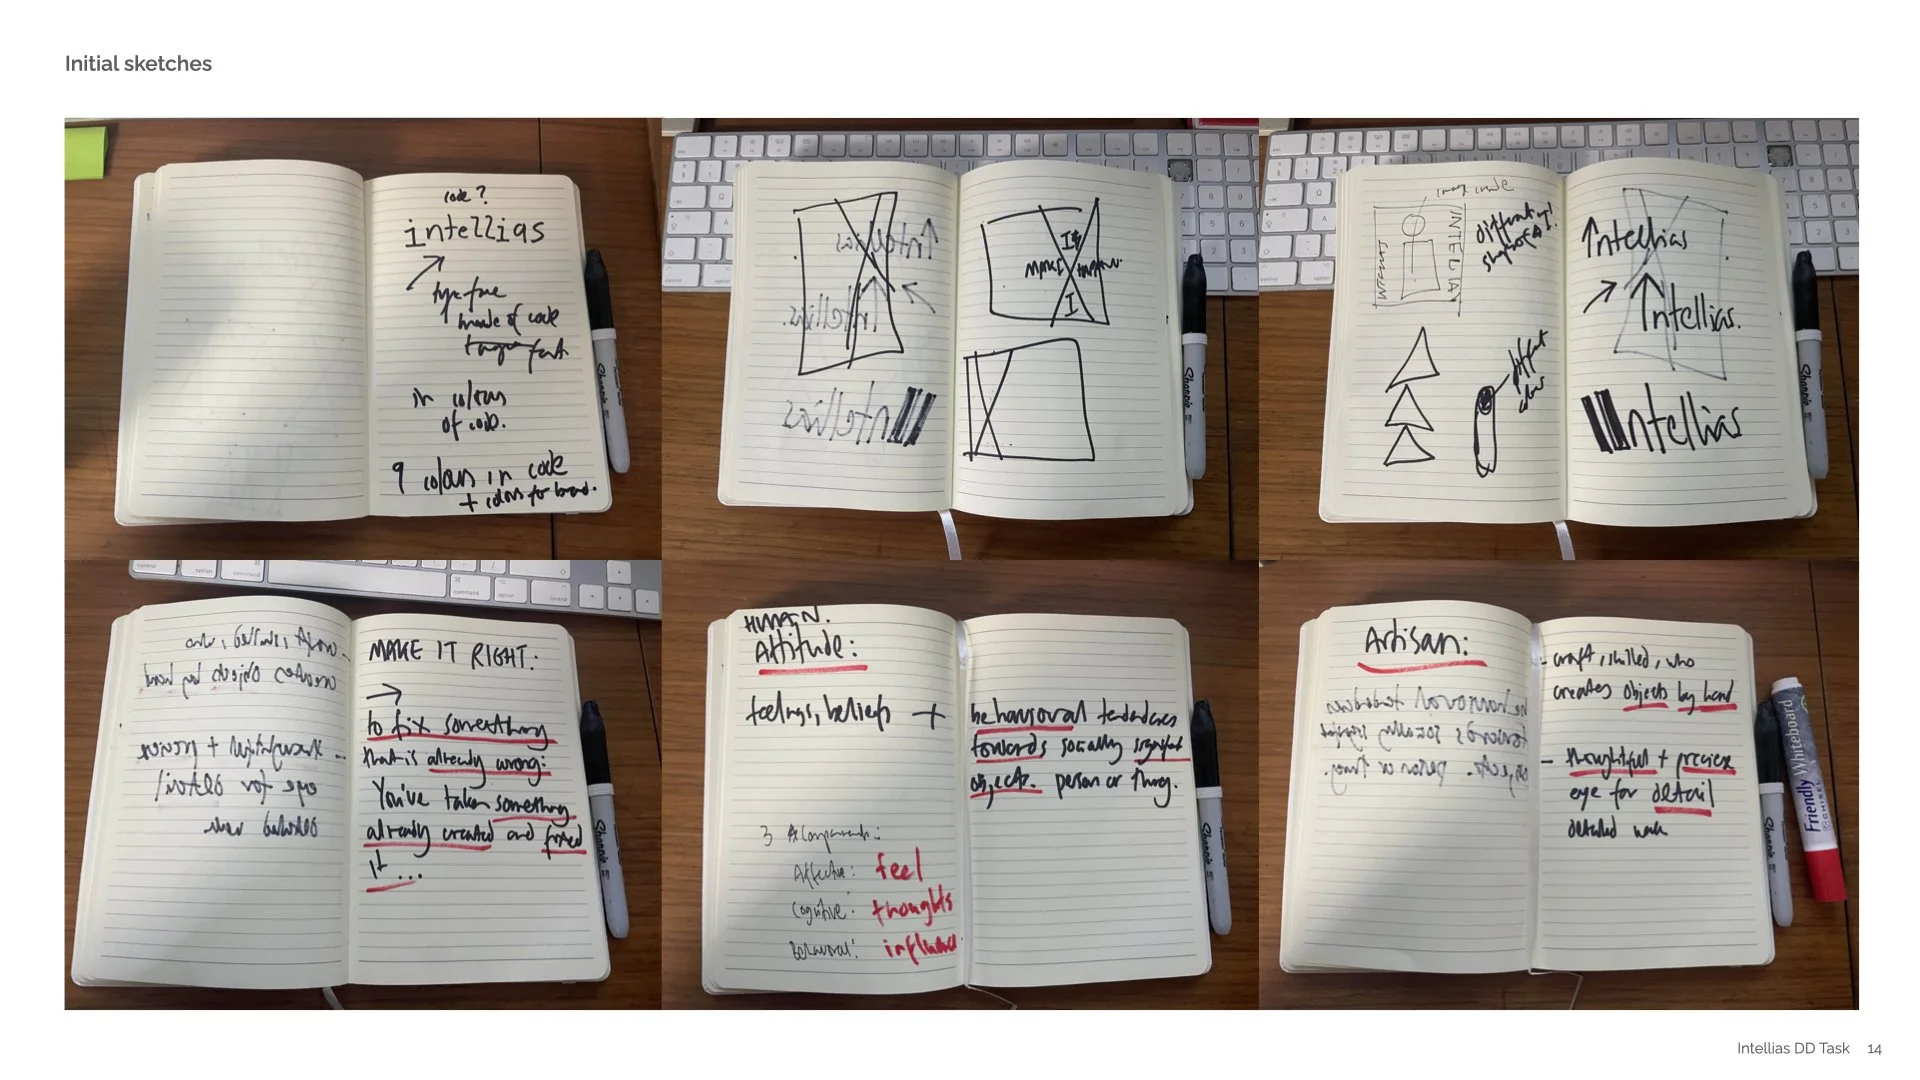 Initial sketches
code?
intellias
typeface
made of code
font
in colours
of code.
9 colours in code
+ colours for brand.
MAKE
I
Image inside
INTELLIAS
different
shapes
different
colours
Intellias
Intellias.
Intellias
MAKE IT RIGHT:
to fix something
that is already wrong:
You've taken something
already created and fixed
it...
HUMAN.
Attitude:
feelings, beliefs +
behavioural tendencies
towards socially significant
objects. person or thing.
3 Components:
Affective: feel
Cognitive: thoughts
Behavioural: influence
Artisan:
- craft, skilled, who
creates objects by hand
- thoughtful + precise
eye for detail
detailed work
Sharpie
Friendly Whiteboard
control
option
command
command
option
control
Intellias DD Task 14